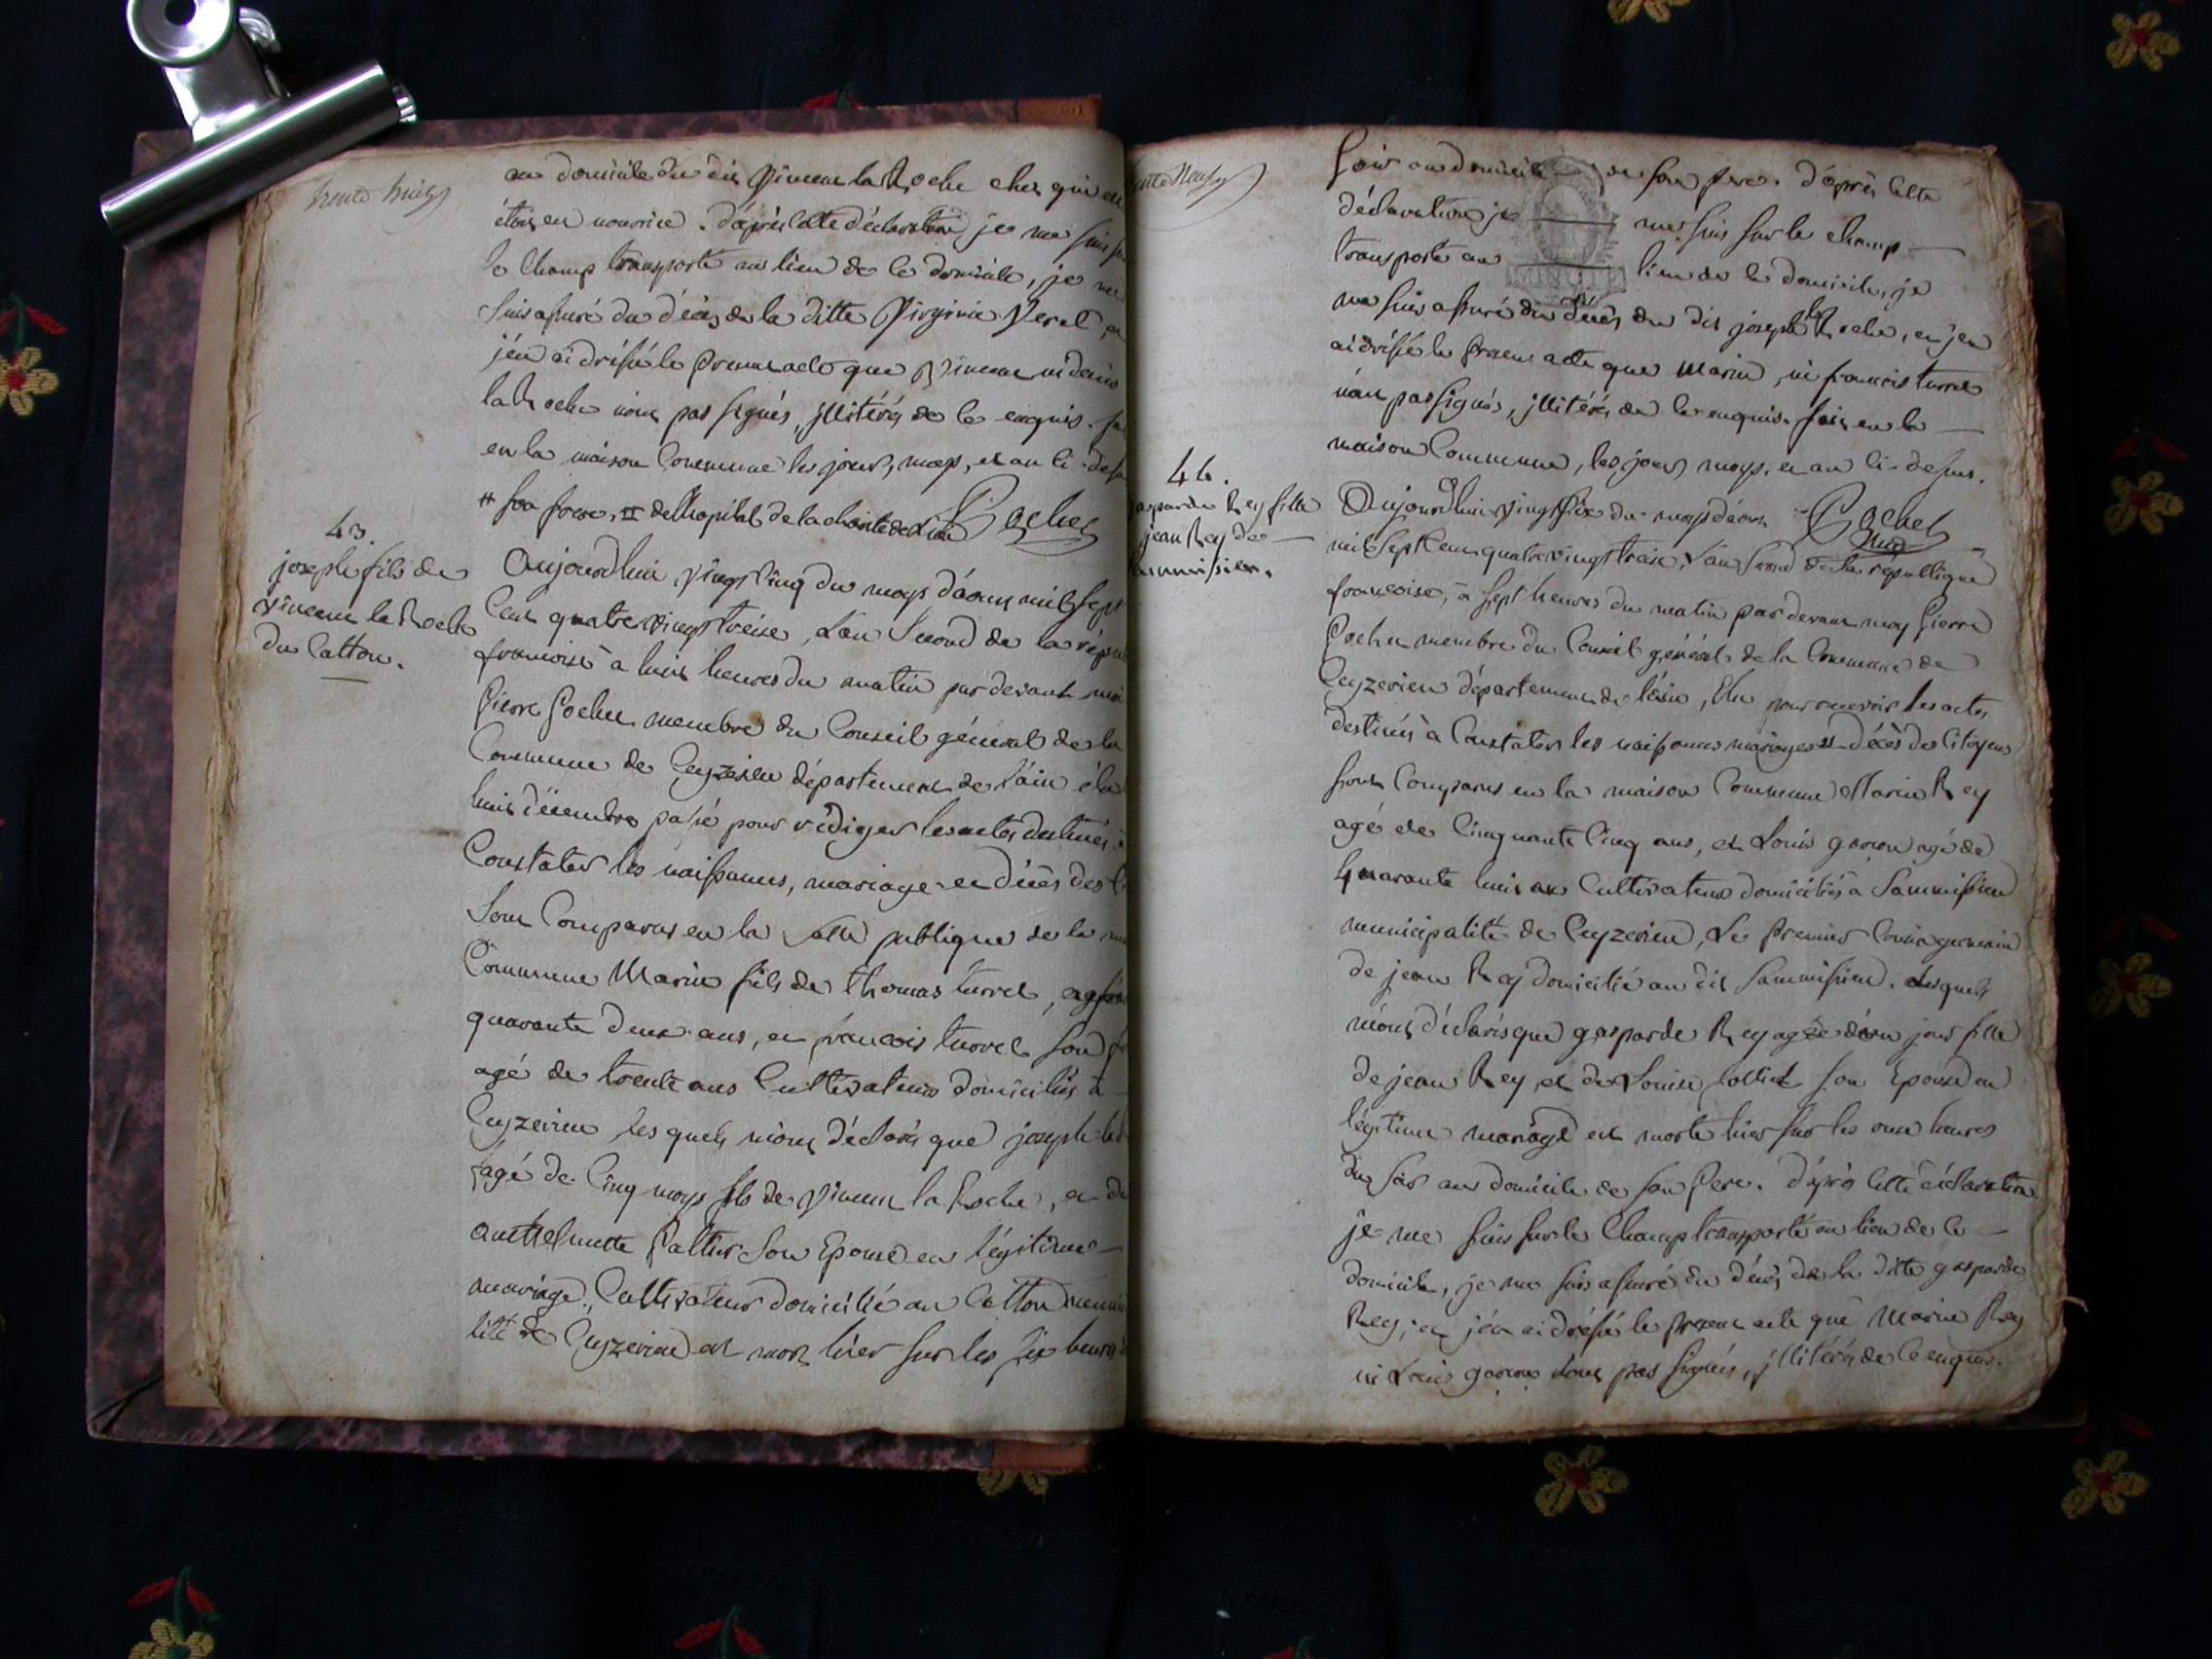 trente huit
au domicile du dit Vincent la Roche chez qui elle
étoit en nourrice. d'après cette déclaration je me suis sur
le Champ transporté au lieu de ce domicile, je me
suis assuré du décès de la ditte Virginie
j'en ai dréssé le present acte que Vincent ni denis
la Roche n'ont pas signés, illitérés de ce enquis. fait
en la maison Commune les jour, moys, et an ci-dessus
# son frere, # de l'hopital de la charité de Lion Cochet
43.
joseph fils de
vincent la Roche
du Catton.
Aujourd'hui vingt cinq du moys d'aout mil sept
Cent quatre vingt treise, L'an Second de la répu
francoise à huit heures du matin par devant moi
Pierre Cochet membre du Conseil général de la
Commune de Ceyzerieu département de l'ain élu
huit décembre passé pour rédiger les actes destinés à
Constater les naissances, mariage et décès des
Sont Comparus en la salle publique de la
Commune Marin fils de thomas turrel, agé
quarante deux ans, et francois turrel son
agé de trente ans Cultivateurs domiciliés à
Ceyzerieu les quels m'ont déclaré que joseph la
agé de Cinq moys fils de Vincent la Roche, et de
anthelmette Son Epouse en légitime
mariage, Cultivateur domicilié au Catton
lité de Ceyzerieu est mort hier sur les six heures
trente Neuf
soir au domicile de son pere. d'après cette
déclaration je me suis sur le champ
transporté au lieu de ce domicile, je
me suis assuré du décès du dit joseph la Roche, et j'en
ai dréssé le present acte que Marin, ni francois turrel
n'ont pas signés, illitérés de ce enquis. fait en la
maison Commune, les jour, moys, et an ci-dessus.
Cochet
44.
gasparde Rey fille
jean Rey de
Aujourd'hui vingt six du moys d'aout
mil Sept Cent quatre vingt treise, L'an Second de la republique
francoise, à sept heures du matin par devant moy Pierre
Cochet membre du Conseil général de la Commune de
Ceyzerieu département de l'ain, Elu pour recevoir les actes
destinés à Constater les naissances mariages et décès des Citoyens
sont Comparus en la maison Commune Marin Rey
agé de Cinquante Cinq ans, et Louis agé de
quarante huit ans Cultivateurs domiciliés à Sammissieu
municipalité de Ceyzerieu, Le premier Cousin germain
de jean Rey domicilié au dit Sammissieu. Lesquels
m'ont déclarés que gasparde Rey agée d'un jour fille
de jean Rey et de Louise son Epouse en
légitime mariage est morte hier sur les onze heures
du soir au domicile de son Pere. d'après cette déclaration
je me suis sur le Champ transporté au lieu de ce
domicile, je me suis assuré du décès de la ditte gasparde
Rey, et j'en ai dréssé le present acte que Marin Rey
ni Louis n'ont pas signés, illitérés de ce enquis.